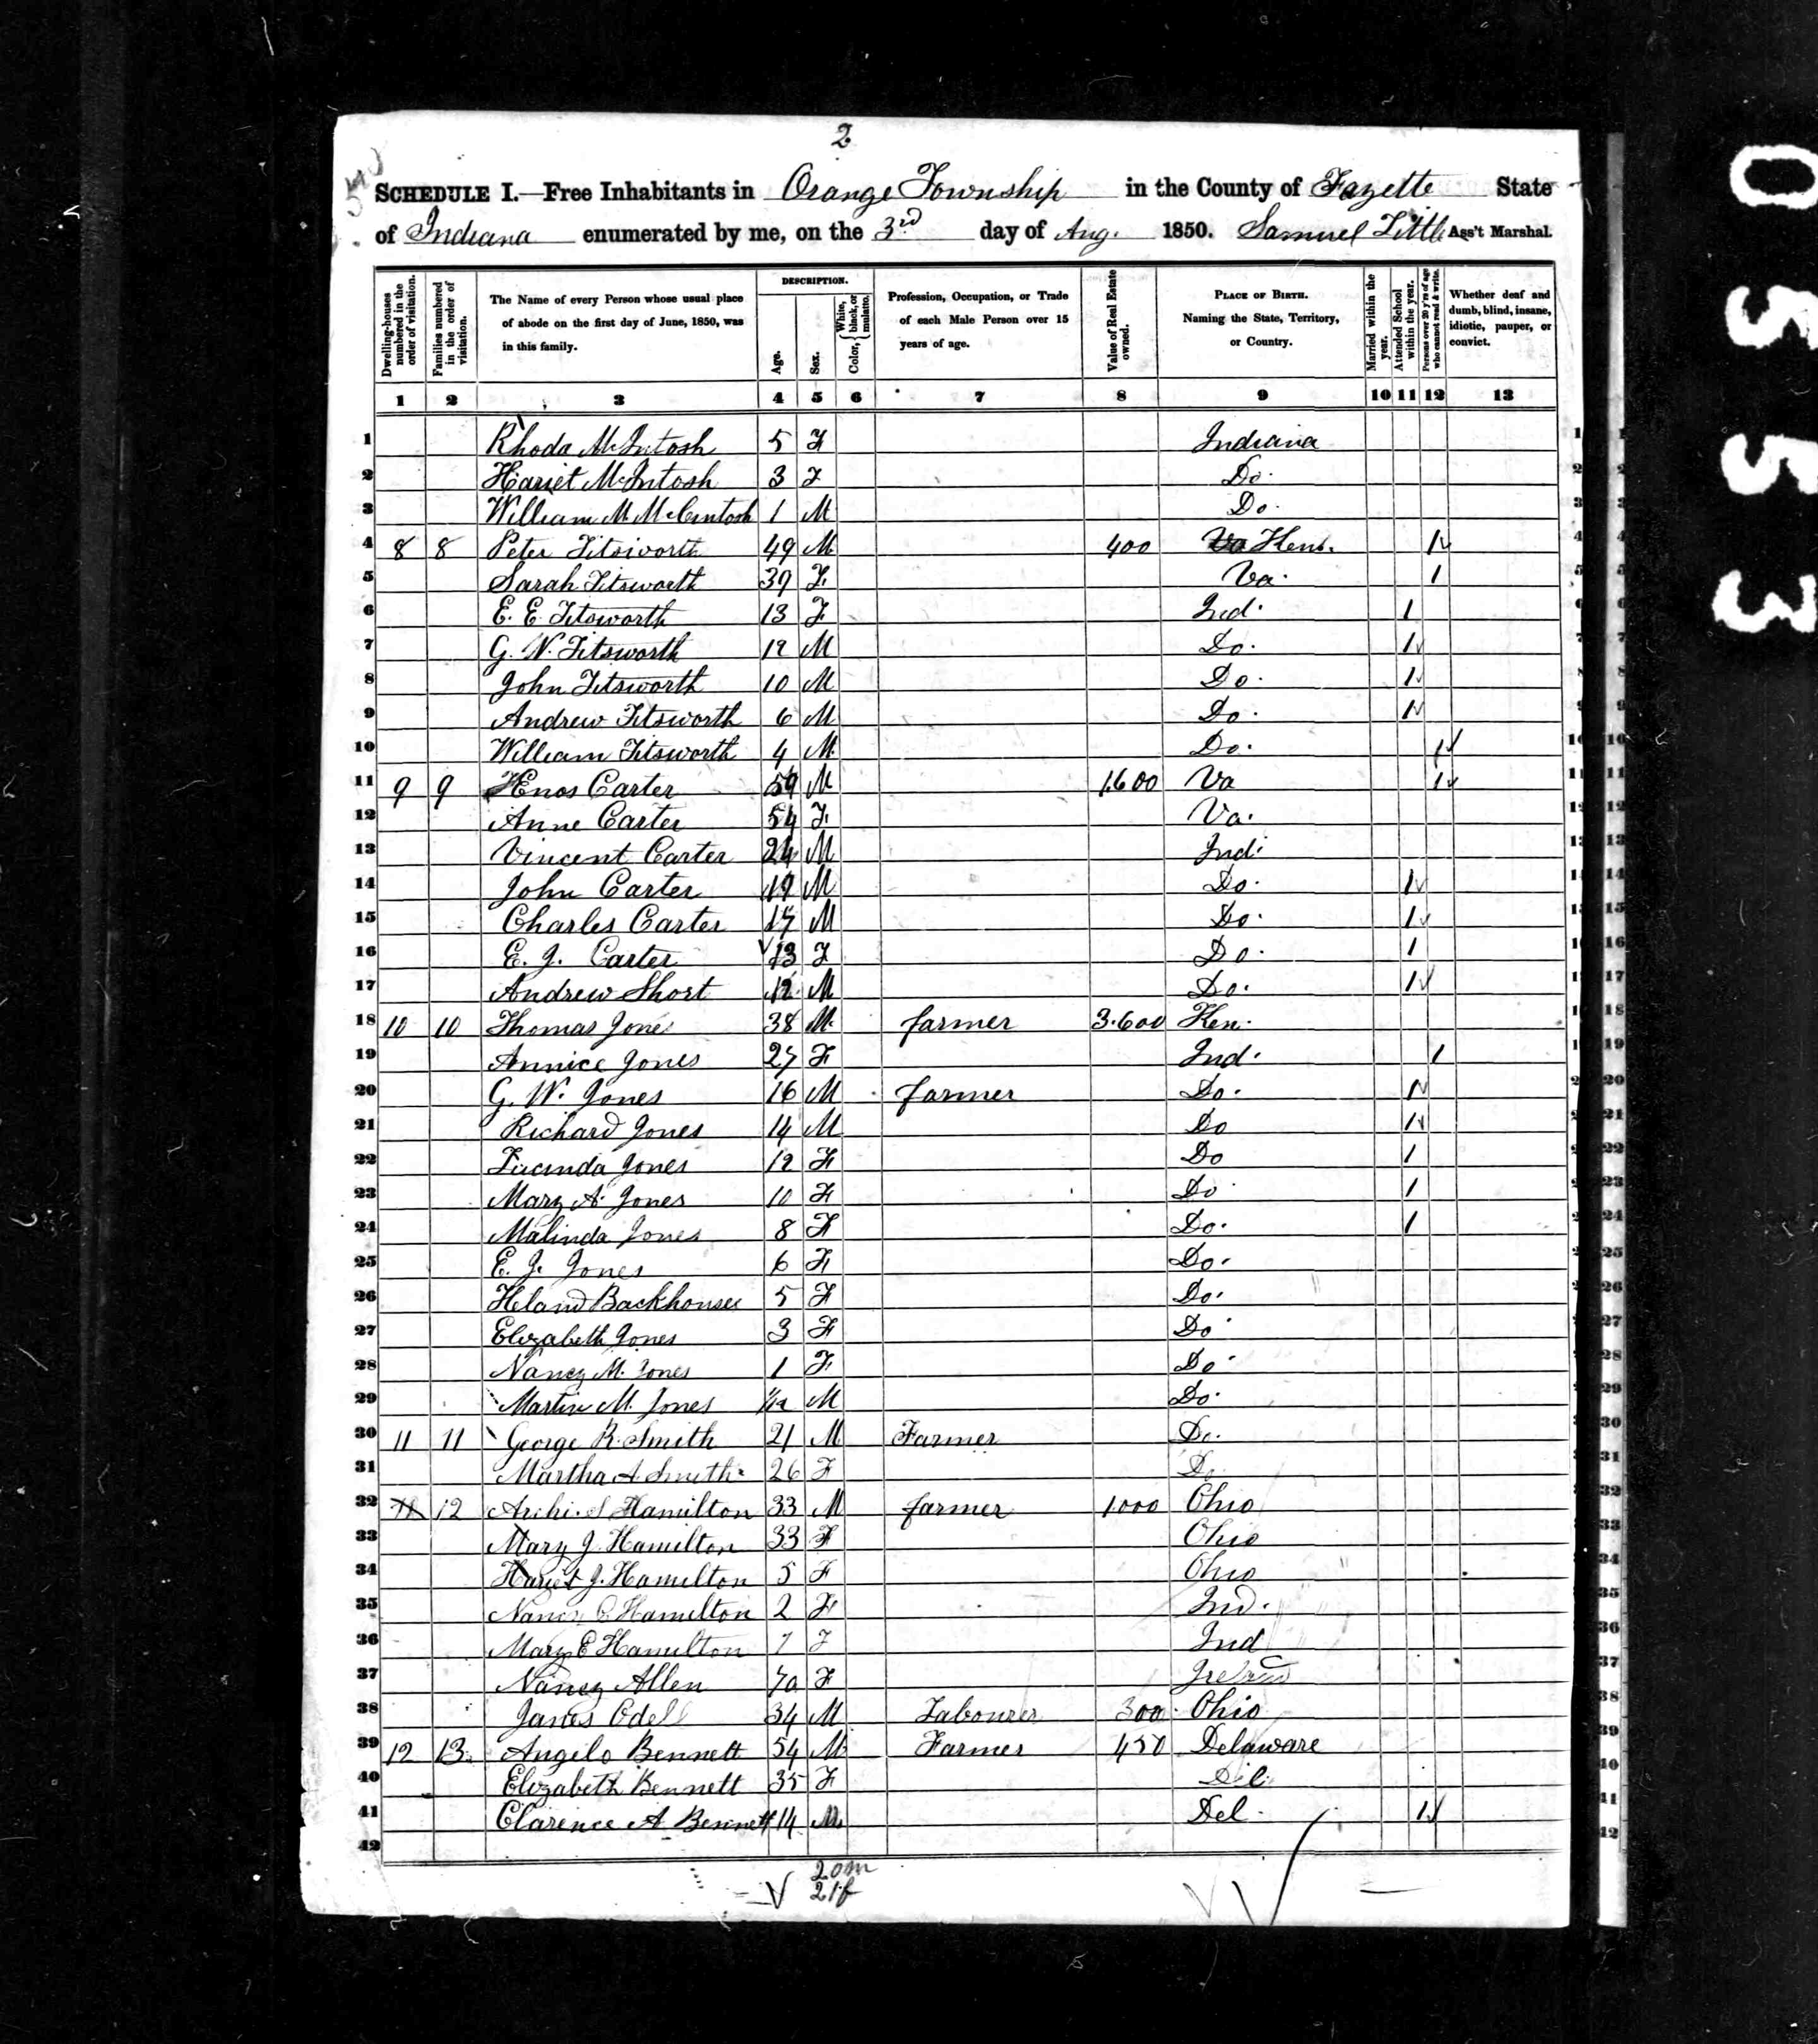 2
SCHEDULE I.—Free Inhabitants in Orange Township in the County of Fayette State
of Indiana enumerated by me, on the 3rd day of Aug. 1850. Samuel Little Ass't Marshal.
Dwelling-houses numbered in the order of visitation.
Families numbered in the order of visitation.
The Name of every Person whose usual place of abode on the first day of June, 1850, was in this family.
DESCRIPTION.
Age.
Sex.
Color, White, black, or mulatto.
Profession, Occupation, or Trade of each Male Person over 15 years of age.
Value of Real Estate owned.
PLACE OF BIRTH. Naming the State, Territory, or Country.
Married within the year.
Attended School within the year.
Persons over 20 y'rs of age who cannot read & write.
Whether deaf and dumb, blind, insane, idiotic, pauper, or convict.
1 2 3 4 5 6 7 8 9 10 11 12 13
1 Rhoda McIntosh 5 F Indiana
2 Hariet McIntosh 3 F Do.
3 William M McCintosh 1 M Do.
4 8 8 Peter Titsworth 49 M 400 Kent. 1
5 Sarah Titsworth 39 F Va. 1
6 E. E. Titsworth 13 F Ind. 1
7 G. W. Titsworth 12 M Do. 1
8 John Titsworth 10 M Do. 1
9 Andrew Titsworth 6 M Do. 1
10 William Titsworth 4 M Do. 1
11 9 9 Enos Carter 59 M 1,600 Va 1
12 Anne Carter 54 F Va.
13 Vincent Carter 24 M Ind.
14 John Carter 19 M Do. 1
15 Charles Carter 17 M Do. 1
16 E. J. Carter 13 F Do. 1
17 Andrew Short 12 M Do. 1
18 10 10 Thomas Jones 38 M farmer 3.600 Ken.
19 Annice Jones 27 F Ind. 1
20 G. W. Jones 16 M farmer Do. 1
21 Richard Jones 14 M Do 1
22 Lucinda Jones 12 F Do 1
23 Mary A. Jones 10 F Do 1
24 Malinda Jones 8 F Do. 1
25 E. J. Jones 6 F Do.
26 Backhouse 5 F Do.
27 Elizabeth Jones 3 F Do
28 Nancy M. Jones 1 F Do
29 Martin M. Jones 1/12 M Do.
30 11 11 George R. Smith 21 M Farmer Do.
31 Martha A Smith 26 F Do
32 12 Hamilton 33 M farmer 1000 Ohio
33 Mary J. Hamilton 33 F Ohio
34 Hariet J. Hamilton 5 F Ohio
35 Nancy C. Hamilton 2 F Ind.
36 Mary E Hamilton F Ind
37 Nancy Allen 70 F Ireland
38 James Odell 34 M Labourer 300 Ohio
39 12 13 Angelo Bennett 54 M Farmer 450 Delaware
40 Elizabeth Bennett 35 F Del
41 Clarence A Bennett 14 M Del. 1
42
20m
21f
0553